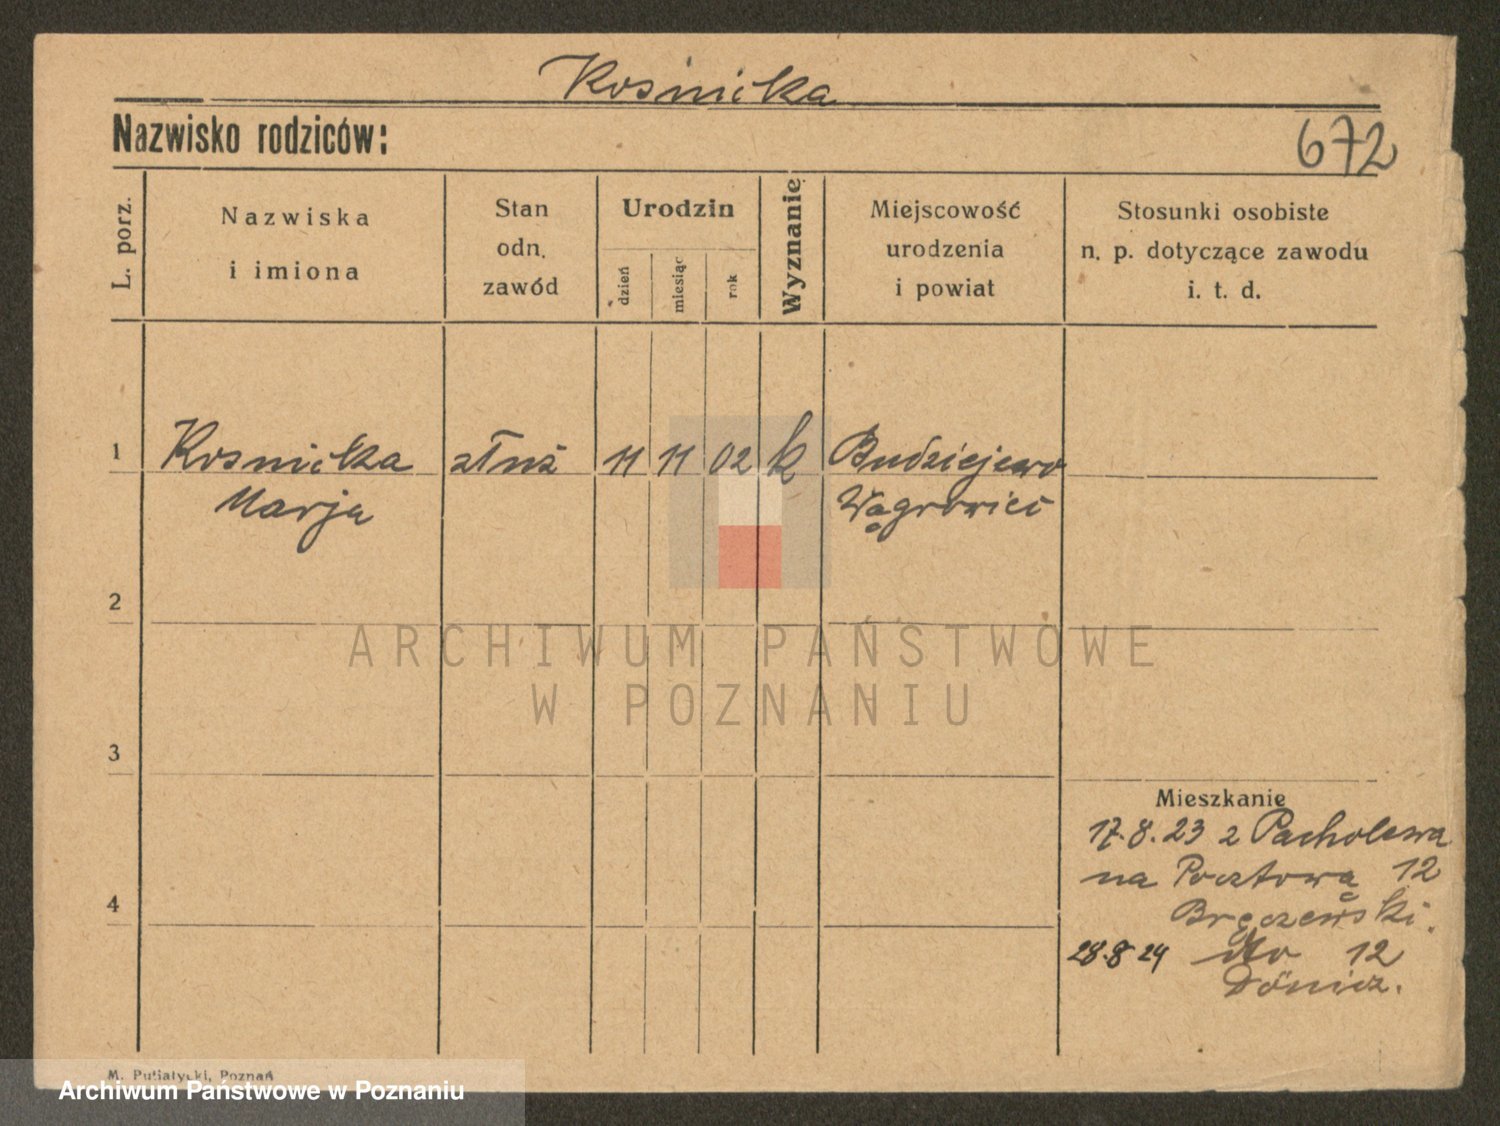 Kosnicka
Nazwisko rodziców:
672
L. porz.
Nazwiska
i imiona
Stan
odn.
zawód
Urodzin
dzień
miesiąc
rok
Wyznanie
Miejscowość
urodzenia
i powiat
Stosunki osobiste
n. p. dotyczące zawodu
i. t. d.
1
Kosnicka służ 11 11 02 k Budziejewo
Marja Wągrowiec
2
ARCHIWUM PAŃSTWOWE
W POZNANIU
3
Mieszkanie
17.8.23 z Pacholewa
na Pocztową 12
4
Bręczewski.
28.8 24 dto 12
Dönicz.
M. Putiatycki, Poznań
Archiwum Państwowe w Poznaniu